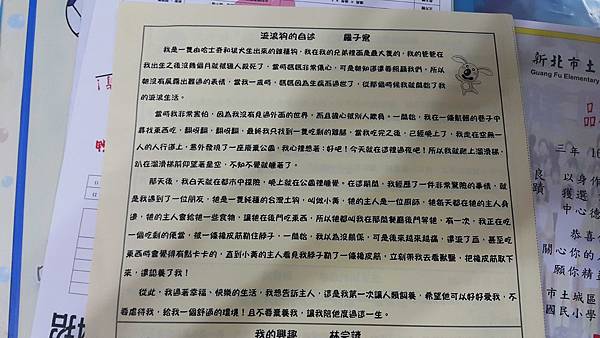 流浪狗的自述 羅子宸
我是一隻由哈士奇和狼犬生出來的雜種狗,我在我的兄弟裡面是最大隻的,我的爸爸在
我出生之後沒幾個月就被獵人殺死了,當時媽媽非常傷心,可是卻知道還要照顧我們,所以
都沒有展露出難過的表情,當我一歲時,媽媽因為生病而過世了,從那個時候我就開始了我
的流浪生活。
當時我非常害怕,因為我沒有見過外面的世界,而且擔心被別人欺負。一開始,我在一條骯髒的巷子中
尋找東西吃,翻呀翻,翻呀翻,最終我只找到一隻吃剩的雞腿,當我吃完之後,已經晚上了,我走在空無一
人的人行道上,意外發現了一座廢棄公園,我心裡想著:好吧!今天就在這裡過夜吧!所以我就爬上溜滑梯,
趴在溜滑梯前仰望著星空,不知不覺就睡著了。
那天後,我白天就在都市中探險,晚上就在公園裡睡覺,在這期間,我經歷了一件非常驚險的事情,就
是我遇到了一位朋友,牠是一隻純種的台灣土狗,叫做小黃,牠的主人是一位廚師,牠每天都在牠的主人身
邊,牠的主人會給牠一些食物,讓牠在後門吃東西,所以牠都叫我在那間餐廳後門等牠,有一次,我正在吃
一個吃剩的便當,被一條橡皮筋勒住脖子,一開始,我以為沒關係,可是後來越來越痛,還流了血,甚至吃
東西時會覺得有點卡卡的,直到小黃的主人看見我脖子勒了一條橡皮筋,立刻帶我去看獸醫,把橡皮筋取下
來,還認養了我!
從此,我過著幸福、快樂的生活,我想告訴主人,這是我第一次讓人類飼養,希望他可以好好愛我,不
要虐待我,給我一個舒適的環境!且不要棄養我,讓我陪他度過這一生。
我的興趣
新北市土
Guang Fu Elementary
品
三年 16
良
蹟
以身作
獲選
中心德
恭喜
關心你的人
願你精
市土城區
國民小學